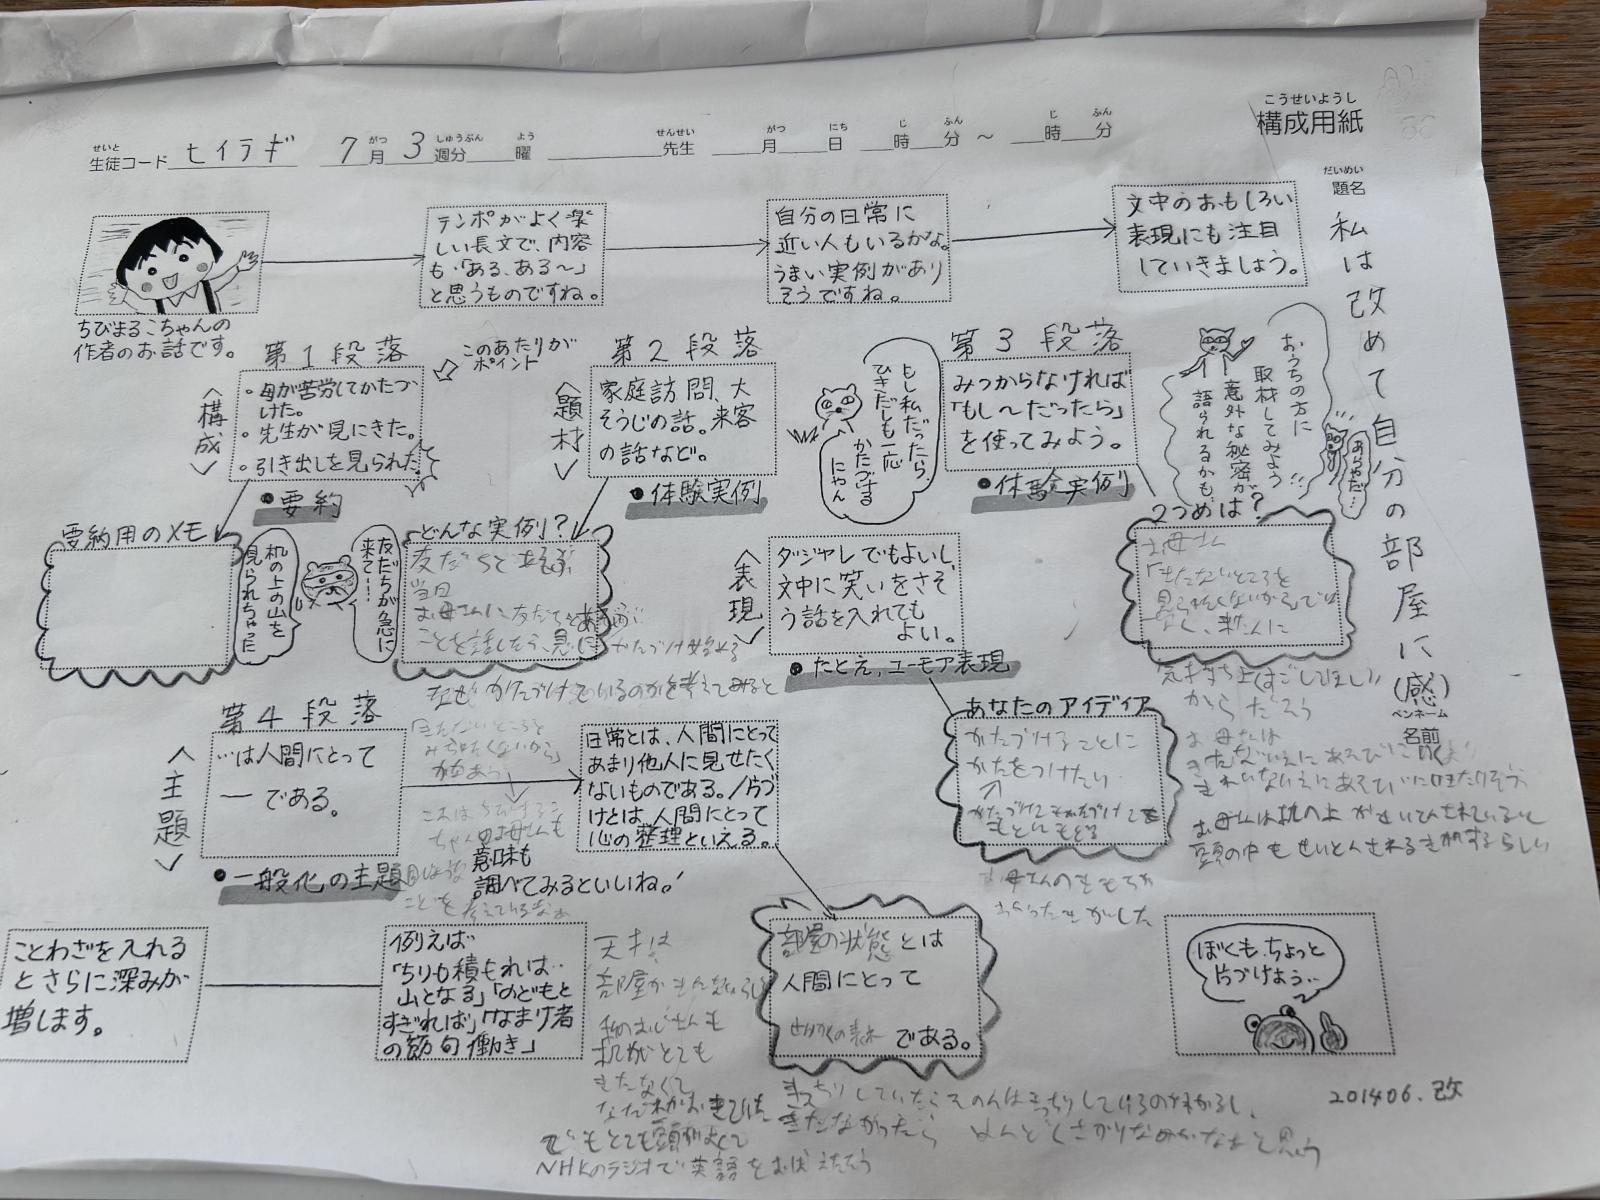 こうせいようし
構成用紙
せいと
生徒コード ヒイラギ 7月3週分 曜 先生 月 日 時 分 ～ 時 分
がつ しゅうぶん よう せんせい がつ にち じ ふん じ ふん
だいめい
題名
私は改めて自分の部屋に(感)
ペンネーム
名前
ちびまるこちゃんの
作者のお話です。
テンポがよく楽
しい長文で、内容
も「ある、ある～」
と思うものですね。
自分の日常に
近い人もいるかな。
うまい実例があり
そうですね。
文中のおもしろい
表現にも注目
していきましょう。
第1段落
<構成>
このあたりが
ポイント
・母が苦労してかたづ
けた。
・先生が見にきた。
・引き出しを見られた
●要約
要約用のメモ
机の上の山を
見られちゃった
友だちが急に
来て…!
第2段落
<題材>
家庭訪問、大
そうじの話。来客
の話など。
●体験実例
どんな実例?
友だちとあそぶ
当日
お母さんに友だちとあそぶ
ことを話したら、急にかたづけ始める
なぜかたづけているのかを考えてみると
きたないところを
みられたくないから」
があろう
もし私だったら、
ひきだしも一応
かたづける
にゃん
第3段落
みつからなければ
「もし～だったら」
を使ってみよう。
●体験実例
おうちの方に
取材してみよう
意外な秘密が
語られるかも…
あらやだ…
2つめは?
お母さん
「きたないところを
見られたくないから」では
なく、来た人に
気持ち良くすごしてほしい
からだろう
お母さんは
きたないいえにあそびに行くより
きれいないえにあそびに行きたいそう
お母さんは机の上がせいとんされていると
頭の中もせいとんされる気がするらしい
<表現>
ダジャレでもよいし、
文中に笑いをさそ
う話を入れても
よい。
●たとえ、ユーモア表現
あなたのアイディア
かたづけることに
かたをつけたい
かたづけてもかたづけても
もとにもどる
お母さんのきもちが
わかったきがした
第4段落
<主題>
…は人間にとって
ー である。
●一般化の主題
日常とは、人間にとって
あまり他人に見せたく
ないものである。/片づ
けとは、人間にとって
心の整理といえる。
これはちびまるこ
ちゃんのお母さんも
同じような
ことを考えているなあ
意味も
調べてみるといいね!
部屋の状態とは
人間にとって
せいかくの表れ である。
きっちりしていたらその人はきっちりしているのがわかるし、
きたなかったら めんどくさがりなのかなあと思う
ことわざを入れる
とさらに深みが
増します。
例えば
「ちりも積もれば‥
山となる」「のどもと
すぎれば」「なまけ者
の節句働き」
天才は
部屋がきたないらしい
私のおじさんも
机がとても
きたなくて
でもとても頭がよくて
NHKのラジオで英語をおぼえたそう
ぼくも、ちょっと
片づけよう‥
201406.改